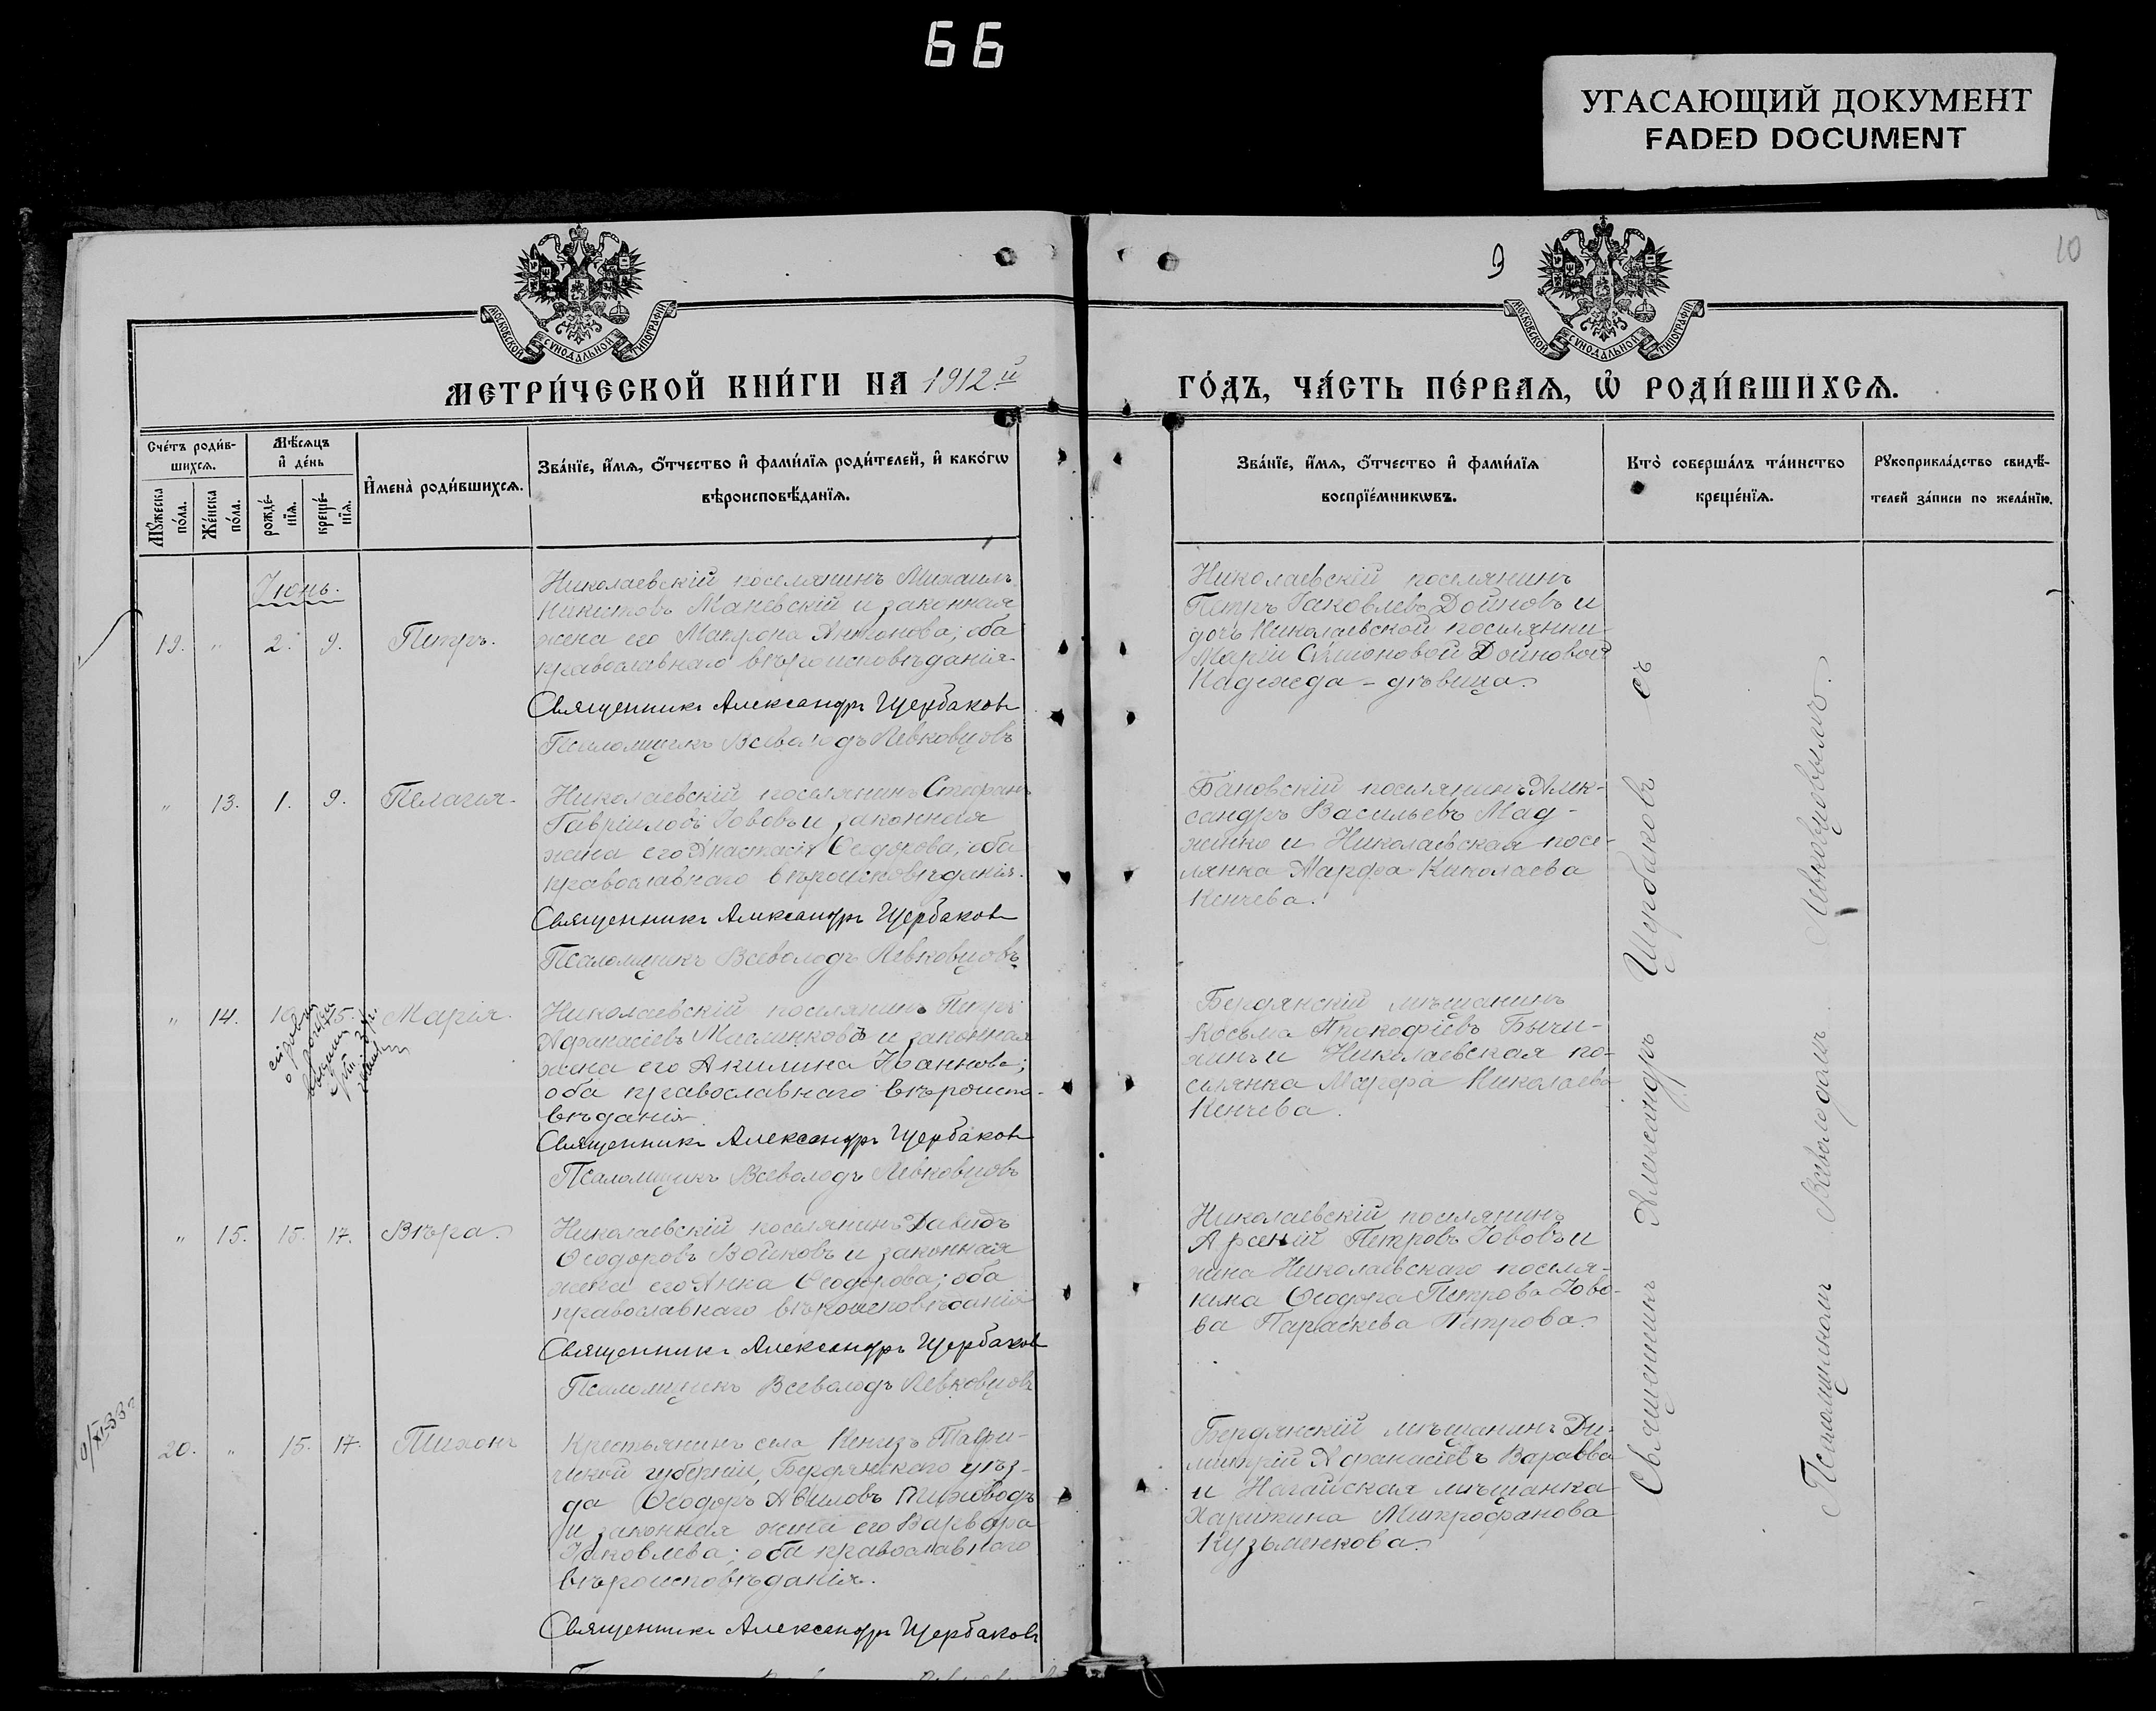 66
УГАСАЮЩИЙ ДОКУМЕНТ
FADED DOCUMENT
9
10
МОСКОВСКОЙ СѴНОДАЛЬНОЙ ТИПОГРАФІИ
МОСКОВСКОЙ СѴНОДАЛЬНОЙ ТИПОГРАФІИ
МЕТРИ́ЧЕСКОЙ КНИ́ГИ НА 1912 й
ГО́ДЪ, ЧА́СТЬ ПЕ́РВАѦ, Ѡ РОДИ́ВШИХСѦ.
Сче́тъ роди́в-
шихсѧ.
Мꙋ́жеска
по́ла.
Же́нска
по́ла.
Мѣ́сѧцъ
и҆ де́нь
рожде́-
нїѧ.
креще́-
нїѧ.
И҆мена̀ роди́вшихсѧ.
Зва́нїе, и҆́мѧ, ѻ҆́тчество и҆ фами́лїѧ роди́телей, и҆ како́гѡ
вѣроисповѣ́данїѧ.
Зва́нїе, и҆́мѧ, ѻ҆́тчество и҆ фами́лїѧ
воспрїе́мникѡвъ.
Кто̀ соверша́лъ та́инство
креще́нїѧ.
Рꙋкоприкла́дство свидѣ́-
телей за́писи по жела́нїю.
Іюнь.
19. " 2. 9. Петръ.
Николаевскій поселянинъ Михаилъ
Никитовъ Маневскій и законная
жена его Матрона Антонова; оба
православнаго вѣроисповѣданія.
Священникъ Александръ Щербаковъ
Псаломщикъ Всеволодъ Левковцовъ
Николаевскій поселянинъ
Петръ Іаковлевъ Дойновъ и
дочь Николаевской поселянки
Маріи Симоновой Дойновой
Надежда - дѣвица.
" 13. 1. 9. Пелагія.
Николаевскій поселянинъ Стефанъ
Гавріиловъ Іововъ и законная
жена его Анастасія Ѳеодорова; оба
православнаго вѣроисповѣданія.
Священникъ Александръ Щербаковъ
Псаломщикъ Всеволодъ Левковцовъ
Бановскій поселянинъ Алек-
сандръ Васильевъ Мад-
женко и Николаевская посе-
лянка Марфа Николаева
Кенчева.
" 14. 10. 15. Марія.
Николаевскій поселянинъ Петръ
Афанасіевъ Мисленковъ и законная
жена его Акилина Іоаннова;
оба православнаго вѣроиспо-
вѣданія.
Священникъ Александръ Щербаковъ
Псаломщикъ Всеволодъ Левковцовъ
Бердянскій мѣщанинъ
Косьма Прокофіевъ Бычи-
хинъ и Николаевская по-
селянка Марфа Николаева
Кенчева.
" 15. 15. 17. Вѣра.
Николаевскій поселянинъ Давидъ
Ѳеодоровъ Войковъ и законная
жена его Анна Ѳеодорова; оба
православнаго вѣроисповѣданія
Священникъ Александръ Щербаковъ
Псаломщикъ Всеволодъ Левковцовъ
Николаевскій поселянинъ
Арсеній Петровъ Іововъ и
жена Николаевскаго поселя-
нина Ѳеодора Петрова Іово-
ва Параскева Петрова.
20. " 15. 17. Тихонъ
Крестьянинъ села Кенгизъ Таври-
ческой губерніи, Бердянскаго уѣз-
да Ѳеодоръ Авиловъ Пивоводъ
и законная жена его Варвара
Іаковлева; оба православнаго
вѣроисповѣданія.
Священникъ Александръ Щербаковъ
Бердянскій мѣщанинъ Ди-
митрій Афанасіевъ Варавва
и Ногайская мѣщанка
Харитина Митрофанова
Кузьменкова.
Священникъ Александръ Щербаковъ съ
Псаломщикомъ Всеволодомъ Левковцовымъ.